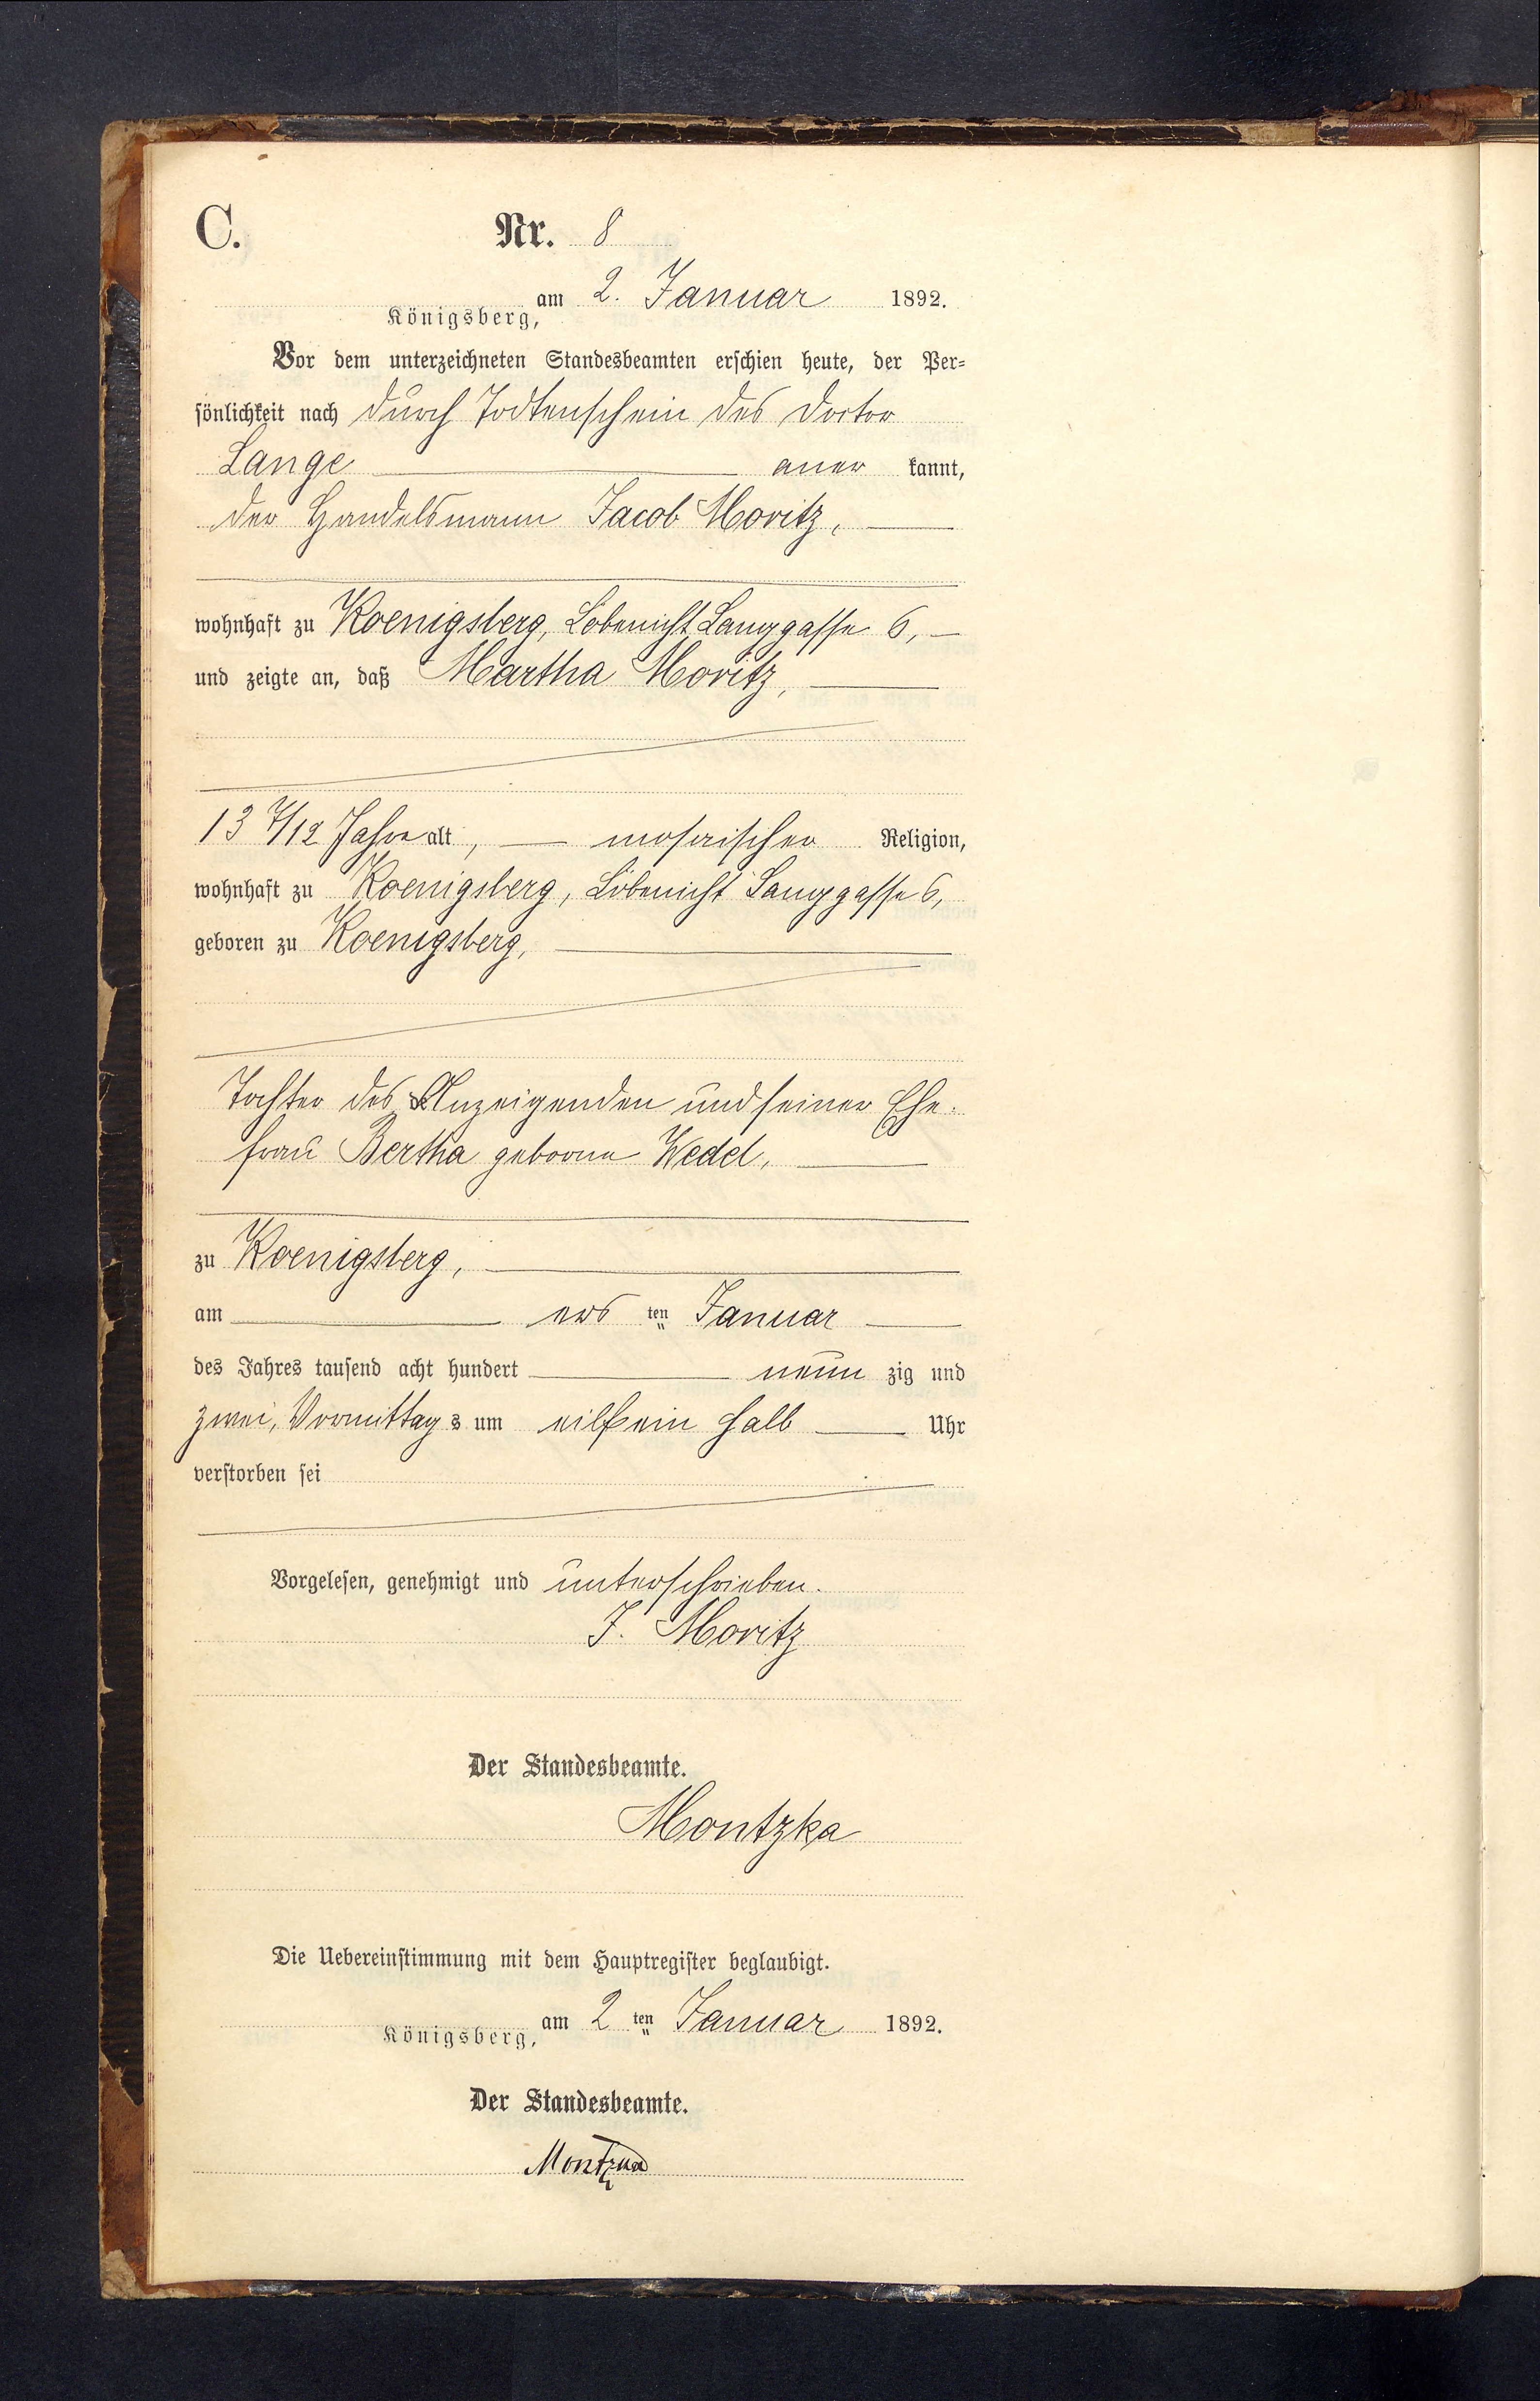 C.
Nr. 8
Königsberg, am 2. Januar 1892.
Vor dem unterzeichneten Standesbeamten erschien heute, der Per-
sönlichkeit nach durch Todtenschein des Doctor
Lange aner kannt,
der Handelsmann Jacob Moritz,
wohnhaft zu Koenigsberg, Löbenicht Langgasse 6,
und zeigte an, daß Martha Moritz,
13 7/12 Jahre alt, mosaischer Religion,
wohnhaft zu Koenigsberg, Löbenicht Langgasse 6,
geboren zu Koenigsberg,
Tochter des Anzeigenden und seiner Ehe-
frau Bertha geborne Wedel,
zu Koenigsberg,
am ers ten Januar
des Jahres tausend acht hundert neun zig und
zwei, Vormittag s um eilf ein halb Uhr
verstorben sei
Vorgelesen, genehmigt und unterschrieben.
J. Moritz
Der Standesbeamte.
Montzka
Die Uebereinstimmung mit dem Hauptregister beglaubigt.
Königsberg, am 2 ten Januar 1892.
Der Standesbeamte.
Montzka